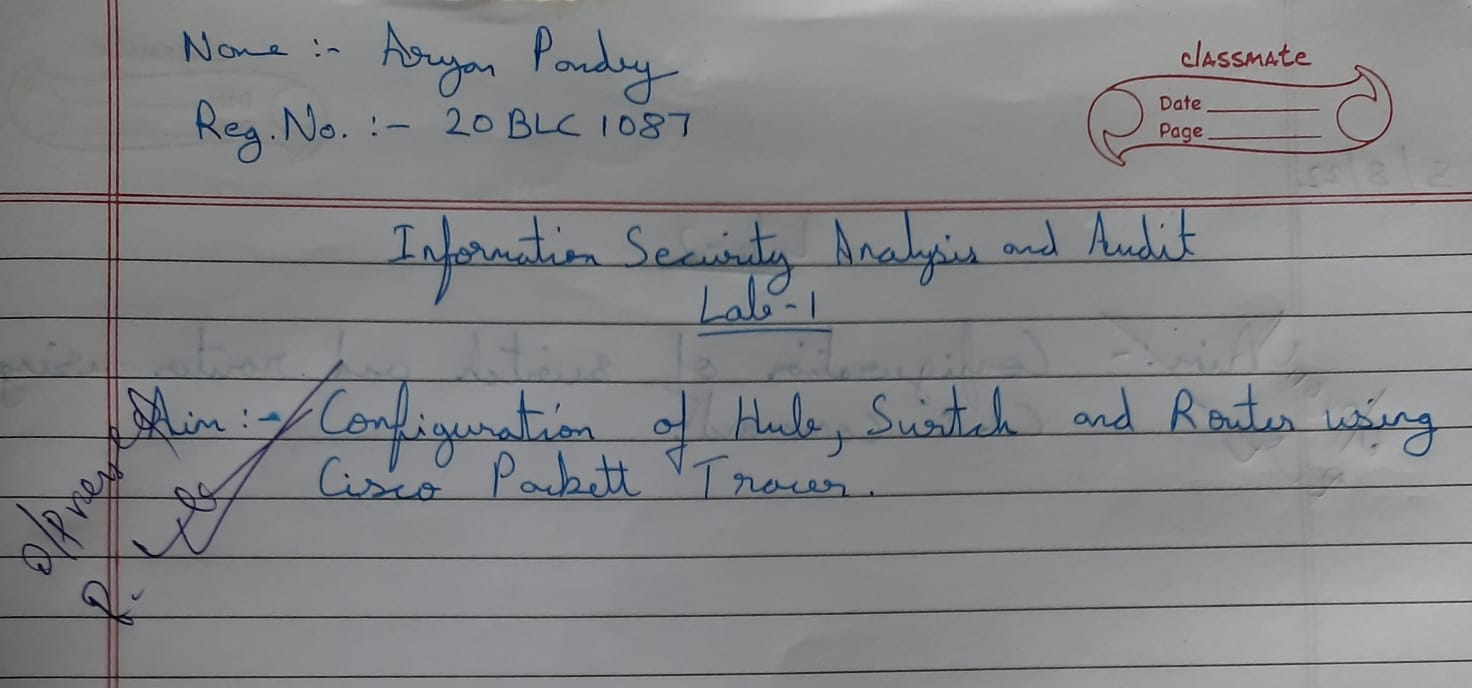 Name :- Aryan Pandey
Reg. No. :- 20BLC1087
classmate
Date
Page
Information Security Analysis and Audit
Lab-1
Aim :- Configuration of Hub, Switch and Router using
Cisco Packett Tracer.